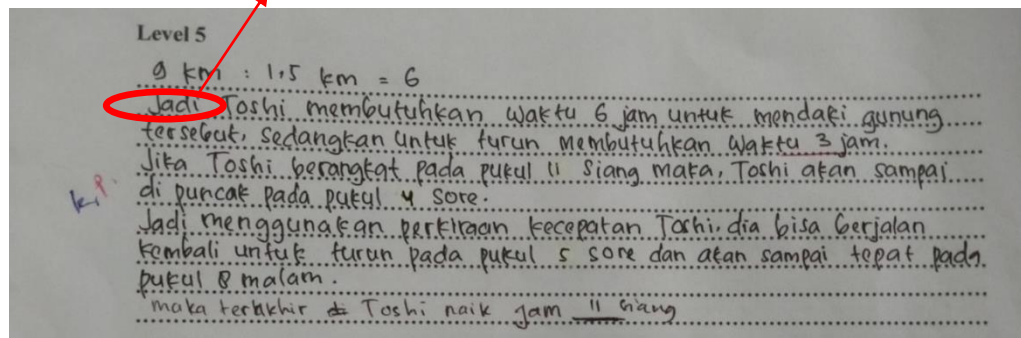 Level 5
9 km : 1,5 km = 6
Jadi Toshi membutuhkan waktu 6 jam untuk mendaki gunung
tersebut, sedangkan untuk turun membutuhkan waktu 3 jam.
Jika Toshi berangkat pada pukul 11 siang maka, Toshi akan sampai
di puncak pada pukul 4 sore.
Jadi menggunakan perkiraan kecepatan Toshi. dia bisa berjalan
kembali untuk turun pada pukul 5 sore dan akan sampai tepat pada
pukul 8 malam.
maka terakhir Toshi naik jam 11 siang